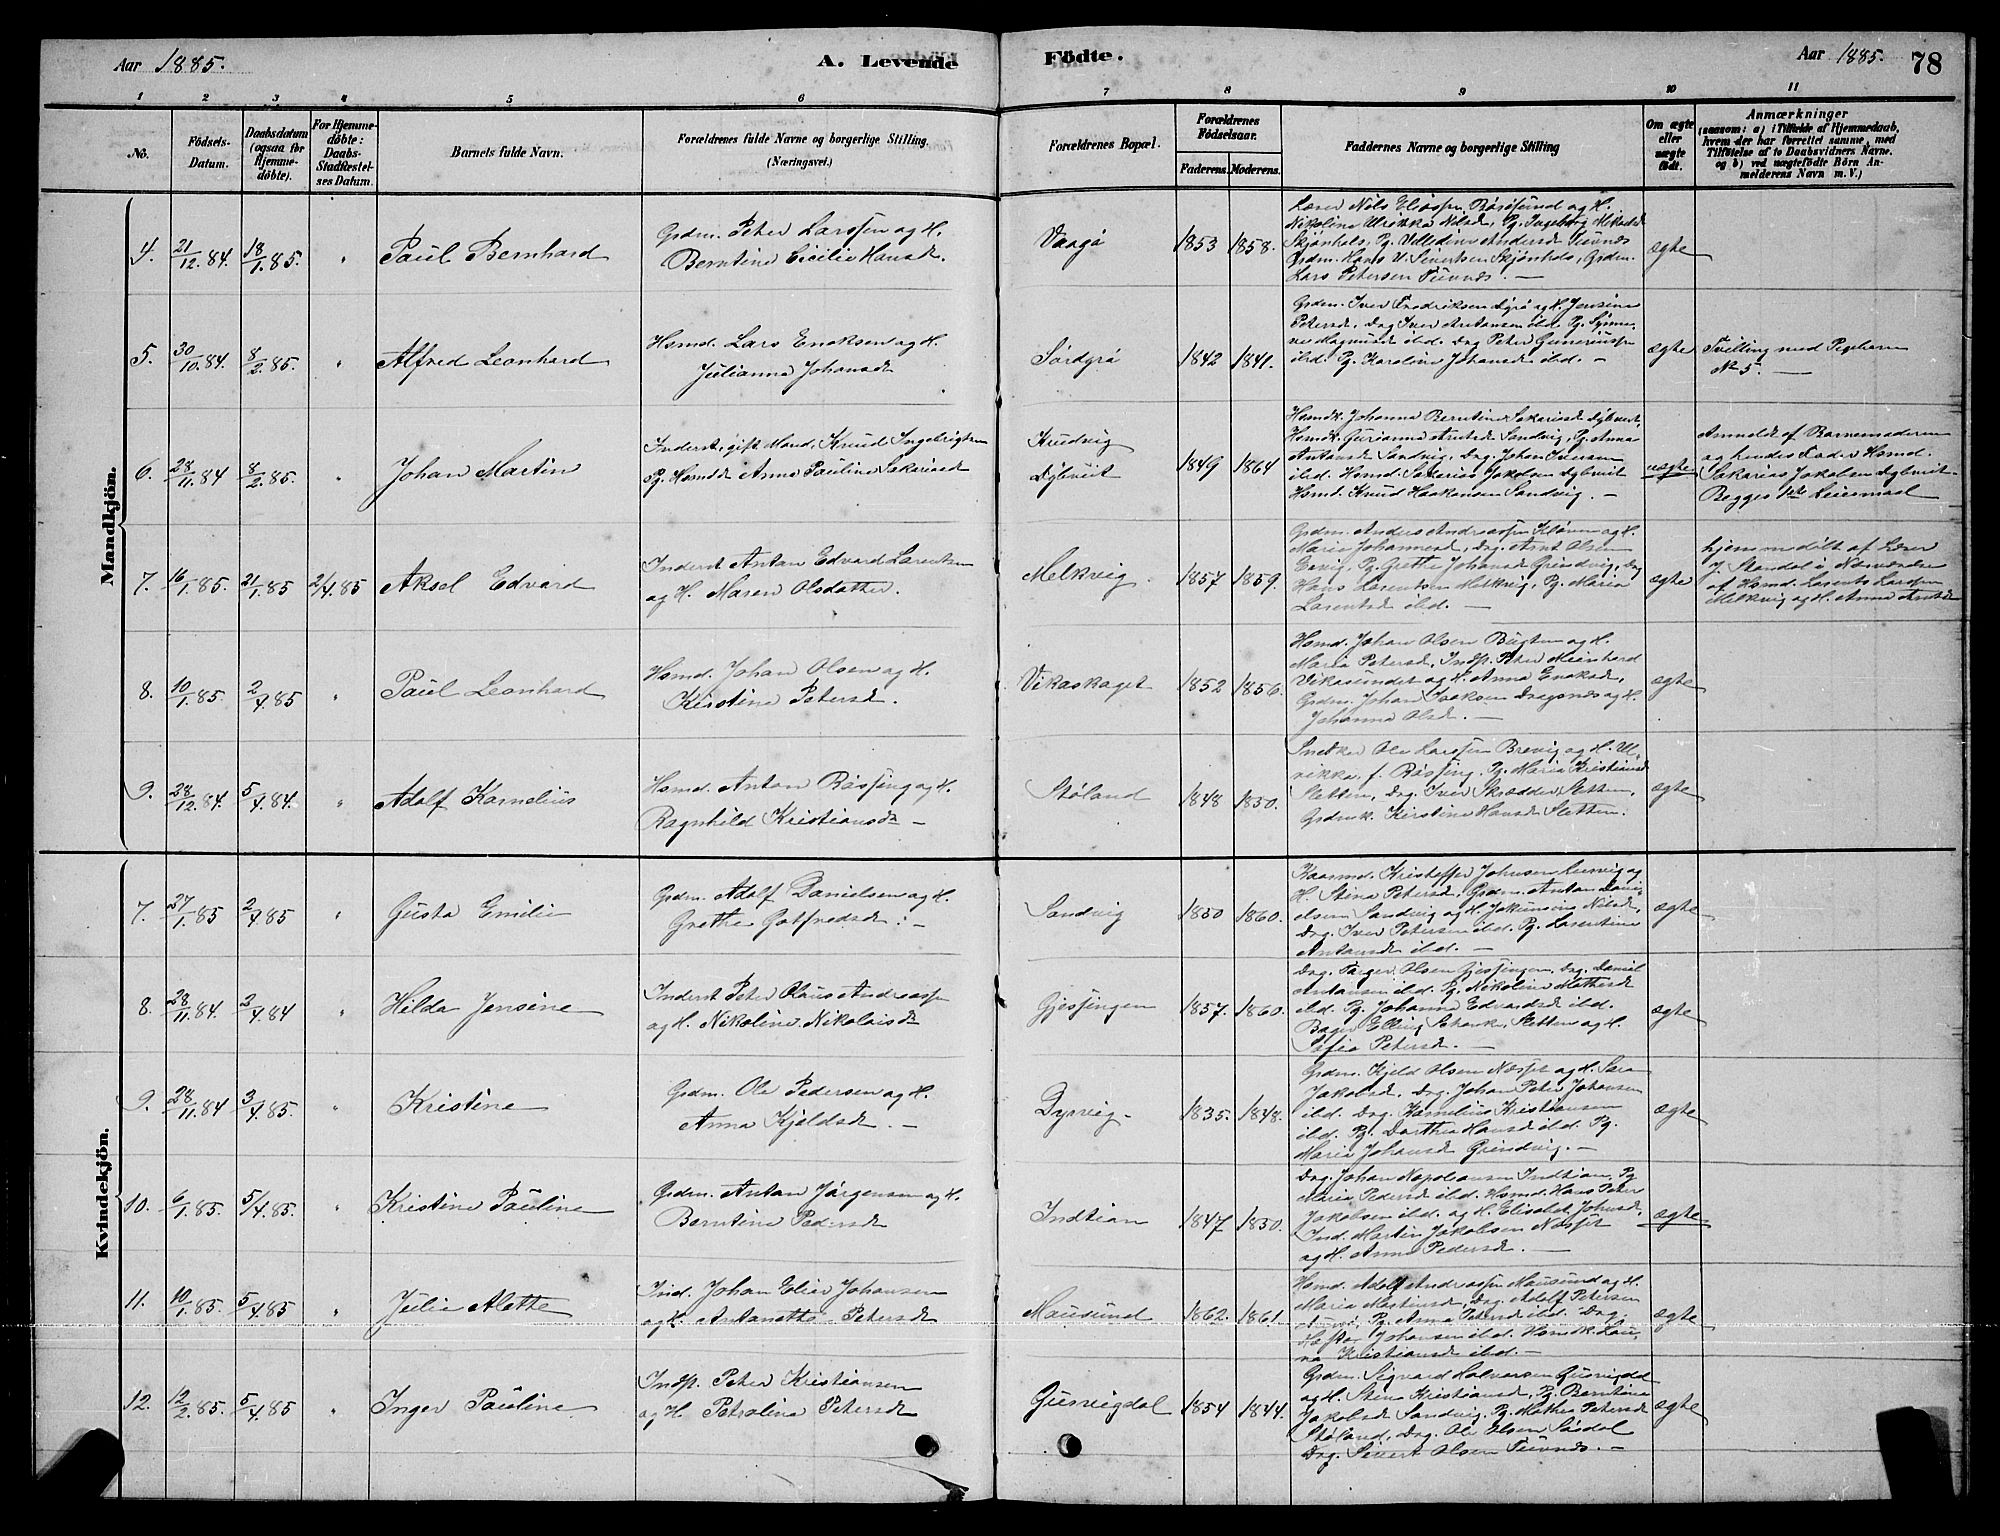 Aar 1885. A. Levende Födte. Aar 1885. 78
1 2 3 4 5 6 7 8 9 10 11
No. Födsels-Datum. Daabsdatum (ogsaa for Hjemme-döbte). For Hjemme-döbte: Daabs-Stadfæstel-ses Datum. Barnets fulde Navn. Forældrenes fulde Navne og borgerlige Stilling. (Næringsvei.) Forældrenes Bopæl. Forældrenes Födselsaar. Faderens. Moderens. Faddernes Navne og borgerlige Stilling Om ægte eller uægte födt. Anmærkninger
(saasom: a) i Tilfælde af Hjemmedaab,
hvem der har forrettet samme, med
Tilföielse af to Daabsvidners Navne,
og b) ved uægtefödte Börn An-
melderens Navn m. V.)
Mandkjön.
4. 21/12.84. 18/1.85. " Paul Bernhard
Gsdm. Peter Larssen og H.
Berntine Cicilie Hansd.
Vaagø 1853 1858.
Lærer Nils Eliassen Røssund og H.
Nikoline Ulrikke Nilsd., Pg. Ingeborg
Skjønhals, Pg. Andersd.
Gsdm. Hans V. Sivertsen Skjønhals, Gsdm.
Lars Petersen
ægte
5. 30/10.84 8/2.85. " Alfred Leonhard
Hsmd. Lars Enoksen og H.
Julianna Johansd
Sørdyrø 1842 1841.
Gsdm. Iver Fredriksen Dyrø og H. Jensine
Petersd. Dag Iver Antonsen ibd. Pg.
Magnusd ibd. Dag Peter
ibd. Pg. Karoline Johansd ibd. —
ægte
Tvilling med Pigebarn
No 5. —
6. 28/11.84 8/2.85. " Johan Martin
Inderst, gift Mand, Knud Ingebrigtsen
Pg. Hsmdd Anne Pauline Sakariasd
Kudvig
Dybvik
1849 1864
Hsmdk. Johanna Berntine Sakariasd Dybvik,
Hsmdk. Gurianna Arntsd Sandvig, Pg. Anna
Antonsd Sandvig, Dg. Johan Iversen
ibd. Hsmd. Sakarias Jakobsen Dybvik
Hsmd. Knud Haakonsen Sandvig. —
uægte
Anmeldt af Barnemoderen
og hendes Fader Hsmd.
Sakarias Jakobsen Dybvik.
Begges 1ste Leiermaal
7. 16/1.85. 21/1.85 2/4.85 Aksel Edvard
Inderst Anton Edvard Larentsen
og H. Maren Olsdatter.
Melkvig. 1857 1859.
Gsdm. Anders Andreassen og H.
Maria Johannesd, Dg. Arnt Olsen
Pg. Grethe Johansd Grindvig, Dg
Hans Larentsen Melkvig, Pg. Maria
Larentsd ibd. —
ægte
hjemmedøbt af Lærer
J. Standal i Nærværelse
af Hsmd. Larents Larssen
Melkvig og H. Anna Arntsd
8. 10/1.85. 2/4.85 " Paul Leonhard
Hsmd. Johan Olsen og H.
Kirstine Petersd.
Vikaskaget 1852 1856.
Hsmd. Johan Olsen Bugten og H.
Maria Petersd, Indp. Peter Meinhard
Vikasundet og H. Anna Enoksd,
Gsdm. Johan Isaksen Dragsnæs og H.
Johanna Olsd. —
ægte
9. 28/12.84 5/4.84. " Adolf Kornelius
Hsmd. Anton Røssing og H.
Ragnhild Kristiansd —
Støland 1848 1850.
Snekker Ole Larssen Brevig og H. Ul-
rikka f. Røssing. Pg. Maria Kristiansd
Sletten, Dg. Iver Skrædder Sletten,
Gsdmk. Kirstine Hansd Sletten.
ægte
Kvindekjön.
7. 27/1.85 2/4.85 " Gusta Emilie
Gsdm. Adolf Danielsen og H.
Grethe Gotfredsd. —
Sandvig 1850 1860.
Kaarmd. Kristoffer Johnsen og
H. Stina Petersd, Gsdm. Anton Dani-
elsen Sandvig og H. Nilsd,
Dag. Iver Petersen ibd. Pg. Larentine
Antonsd ibd. —
ægte
8. 28/11.84. 3/4.84 " Hilda Jensine
Inderst Peter Olaus Andreassen
og H. Nikoline Nikolaisd
Gjessingen 1857. 1860.
Dag. Olsen Gjessingen, Dg. Daniel
Antonsen ibd. Pg. Nikoline
ibd. Pg. Johanna Edvardsd ibd.
Bager Elling Schevik, Sletten og H.
Sofie Petersd. —
ægte
9. 28/11.84 3/4.85. " Kristine
Gsdm. Ole Pedersen og H.
Anna Kjeldsd. —
Dyrvig 1835. 1848.
Gsdm. Kjeld Olsen Næsset og H. Sara
Jakobsd, Dag. Johan Peter Johansen
ibd. Dag. Kornelius Kristiansen
ibd. Pg. Dorthea Hansd ibd. Pg.
Maria Johansd Grindvig. —
ægte
10. 6/1.85. 5/4.85. " Kristine Pauline
Gsdm. Anton Jørgensen og H.
Berntine Pedersd
Indtian 1847 1850.
Dag. Johan Napoleonsen Indtian, Pg
Maria Pedersd ibd. Hsmd. Hans Peter
Jakobsen ibd. og H. Elisabet Johnsd,
Ind. Martin Jakobsen Næsset
og H. Anna Pedersd. —
ægte
11. 10/1.85. 5/4.85 " Julie Alette
Ind. Johan Elier Johansen
og H. Antonette Petersd
Mausund 1862. 1861
Hsmd. Adolf Andreassen Mausund og H.
Maria Martinsd, Dag. Adolf Petersen
Pg. Anna Petersd ibd. Dag.
Johansen ibd. Hsmdk. Lau-
ra Kristiansd ibd. —
ægte
12. 12/2.85. 5/4.85 " Inger Pauline
Indp. Peter Kristiansen
og H. Petrolina Petersd
Gusvigdal 1854 1844.
Gsdm. Sigvard Halvorsen Gusvigdal
og H. Stina Kristiansd, Pg. Berntina
Jakobsd Sandvig, Pg. Mathea Petersd
Støland, Dag. Ole Olsen Sørdal
Dag. Sivert Olsen
ægte